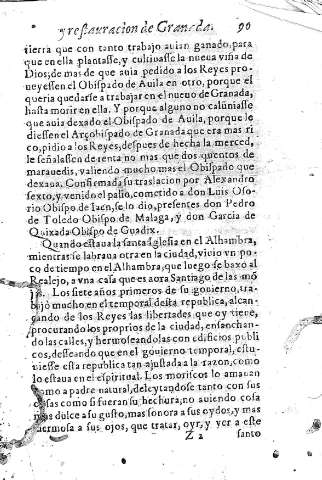 y restauracion de Granada. 90
tierra que con tanto trabajo auian ganado, para
que en ella plantasse, y cultiuasse la nueua viña de
Dios; de mas de que auia pedido a los Reyes pro-
ueyessen el Obispado de Auila en otro, porque el
queria quedarse a trabajar en el nueuo de Granada,
hasta morir en ella. Y porque alguno no calūniasse
que auia dexado el Obispado de Auila, porque le
diessen el Arçobispado de Granada que era mas ri
co, pidio a los Reyes, despues de hecha la merced,
le señalassen de renta no mas que dos quentos de
marauedis, valiendo mucho mas el Obispado que
dexaua. Confirmada su traslacion por Alexandro
sexto, y venido el palio, cometido a don Luis Oso-
rio Obispo de Iaen, se lo dio, presentes don Pedro
de Toledo Obispo de Malaga, y don Garcia de
Quixada Obispo de Guadix.
Quando estaua la santa Iglesia en el Alhambra,
mientras se labraua otra en la ciudad, viuio vn po
co de tiempo en el Alhambra, que luego se baxó al
Realejo, a vna casa que es aora Santiago de las mō
jas. Los siete años primeros de su gouierno, tra-
bajó mucho en el temporal desta republica, alcan-
çando de los Reyes las libertades que oy tiene,
procurando los proprios de la ciudad, ensanchan-
do las calles, y hermoseandolas con edificios publi
cos, desseando que en el gouierno temporal, estu-
uiesse esta republica tan ajustada a la razon, como
lo estaua en el espiritual. Los moriscos lo amauan
como a padre natural, deleytandose tanto con sus
cosas como si fueran su hechura, no auiendo cosa
mas dulce a su gusto, mas sonora a sus oydos, y mas
hermosa a sus ojos, que tratar, oyr, y ver a este
Z 2 santo